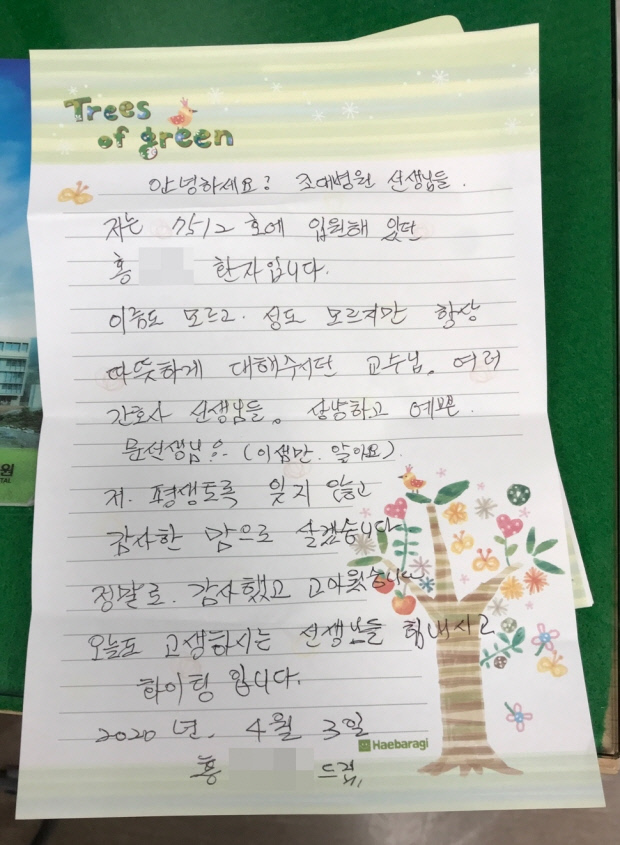 Trees
of green
안녕하세요? 조대병원 선생님들.
저는 7512 호에 입원해 있던
홍 환자입니다.
이름도 모르고. 성도 모르지만 항상
따뜻하게 대해주시던 교수님. 여러
간호사 선생님들. 상냥하고 예쁜.
문선생님. (이쌤만. 알아요).
저. 평생토록 잊지 않고
감사한 맘으로 살겠습니다
정말로. 감사했고 고마웠습니다
오늘도 고생하시는 선생님들 힘내시고
화이팅 입니다.
2020 년. 4월 3일
Haebaragi
홍 드림
원
TAL